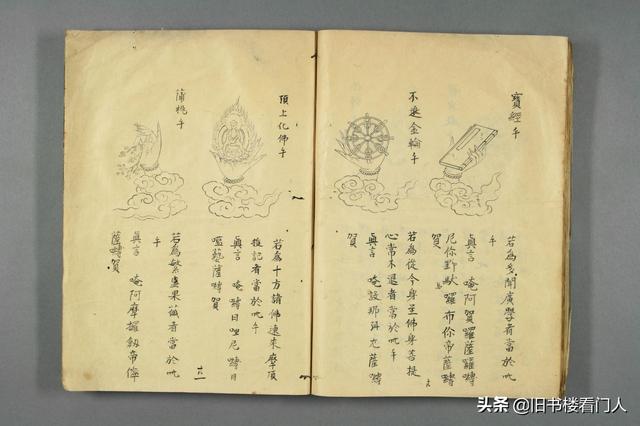 寶經手
若為多聞廣學者當於此
手
真言 唵阿賀囉薩囉嚩
尼你野馱囉布你帝薩嚩
賀
不退金輪手
若為從今身至佛身菩提
心常不退者當於此手
真言 唵設那弭左薩嚩
賀
頂上化佛手
若為十方諸佛速來摩頂
授記者當於此手
真言 唵嚩日哩尼嚩日
藝薩嚩賀
蒲桃手
若為繁盛果蓏者當於此
手
真言 唵阿摩攞劍帝儜
薩嚩賀
头条 @旧书楼看门人